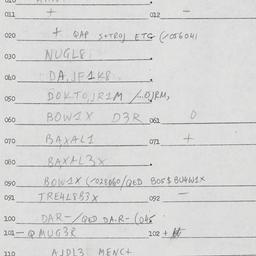 011 + 012 —
020 + QAP S+TROJ ETG (/056041
030 NUGL8
040 DA,JF1K8
050 DOKTO,JR1M /..OJRM,
060 BOW1X D3R 061 0
070 BAXAL1 071 +
080 BAXAL3X
090 BOW1X (/023060/QED BOS$BU4W1X
091 TRE4L8J3X 092 —
100 DAR-/QED DA.R- (045
101 - QMUG3R 102 +
110 AJDL3 MENC+